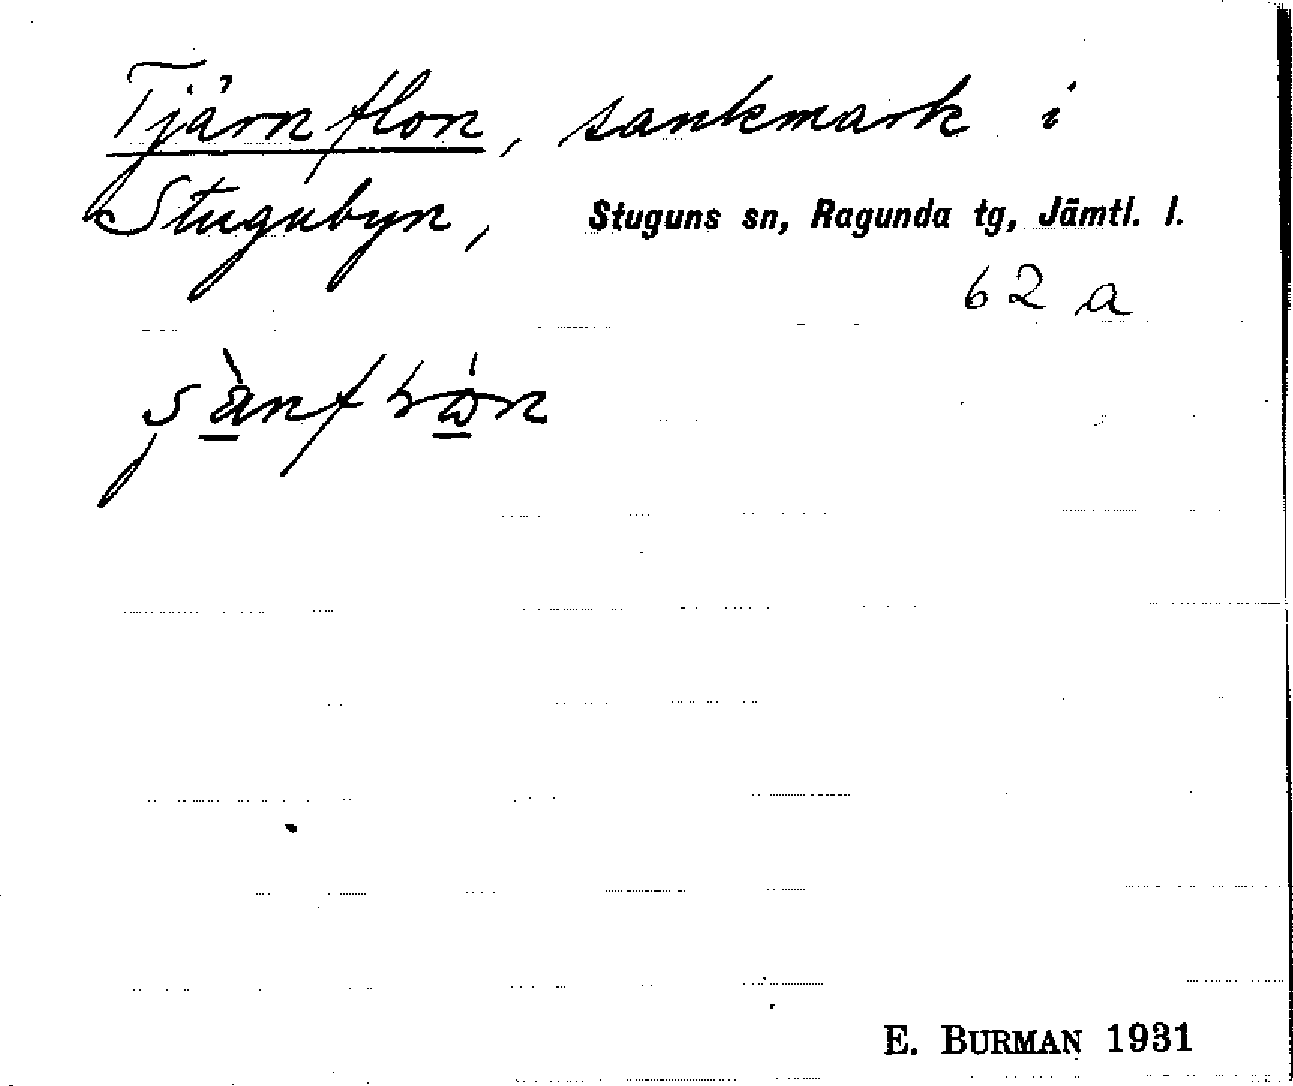 Tjärnflon, sankmark i
Stugubyn, Stuguns sn, Ragunda tg, Jämtl. l.
62 a
E. BURMAN 1931